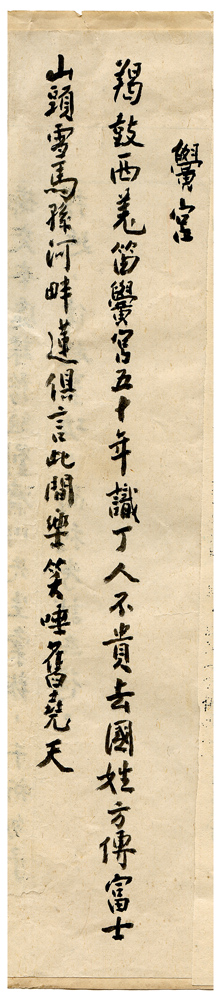 黌宮
羯鼓西羌笛黌宮五十年識丁人不貴去國姓方傳富士
山頭雪馬孫河畔蓮俱言此間樂笑唾舊堯天